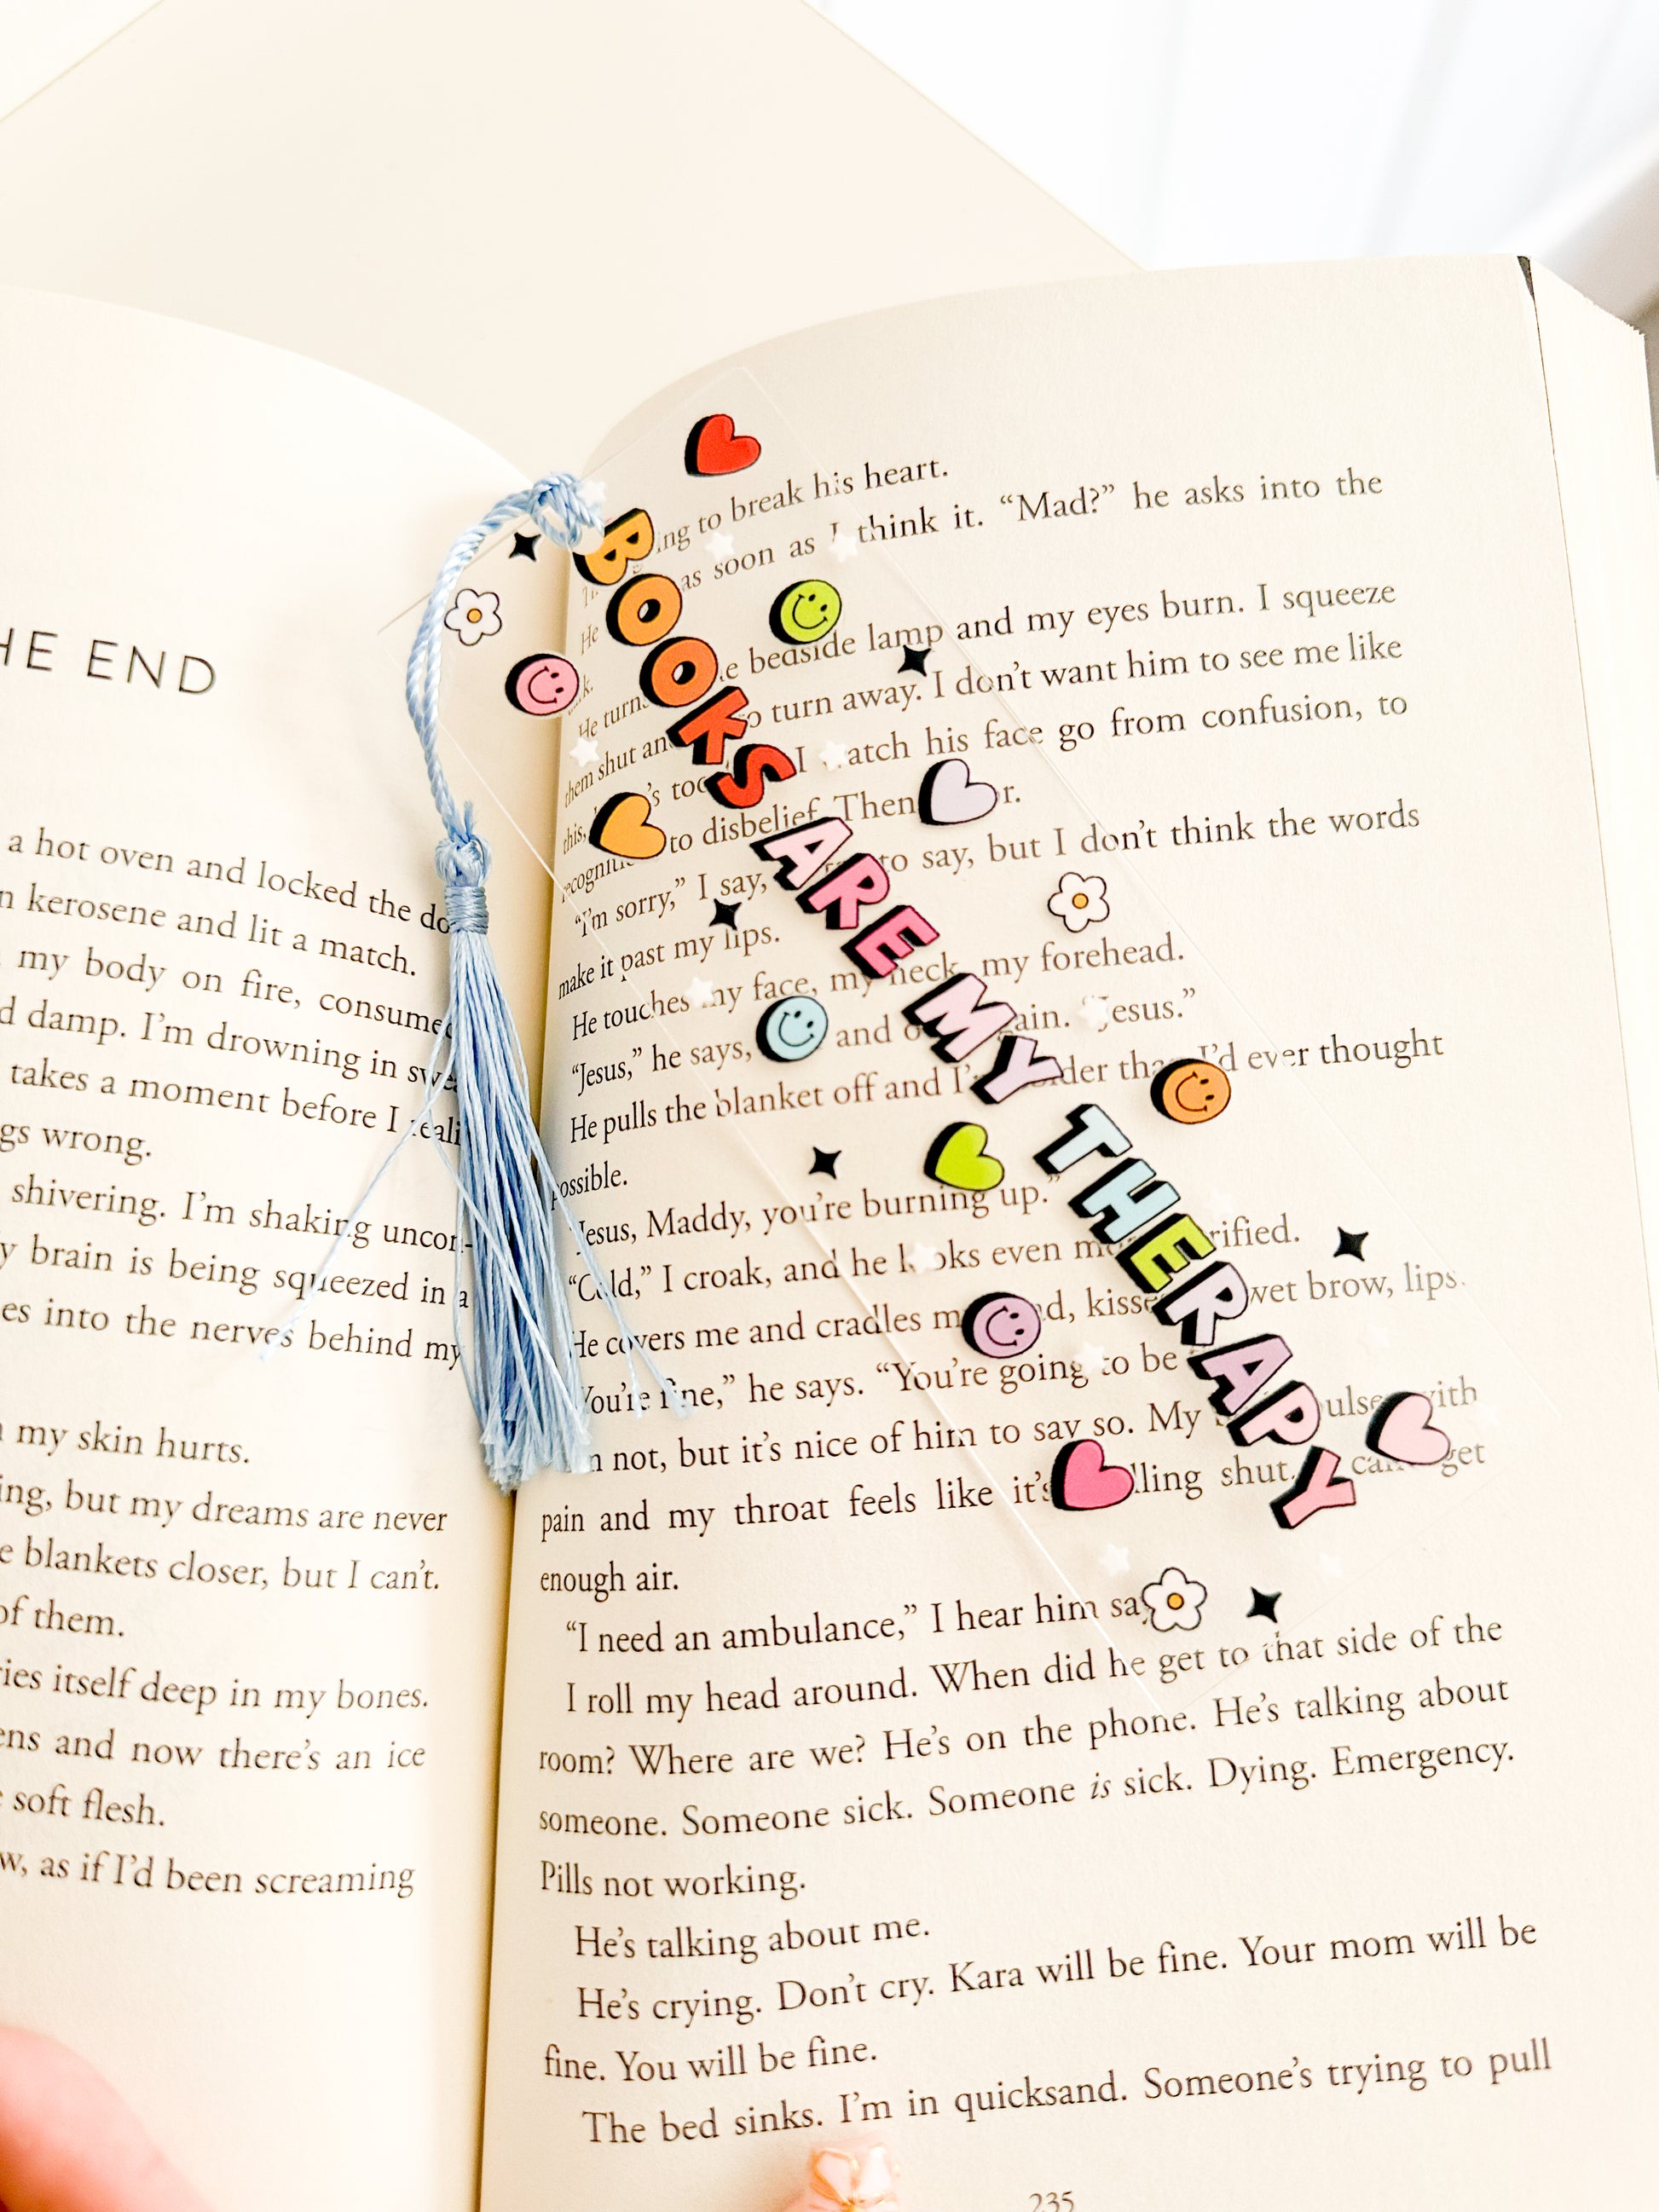 HE END
a hot oven and locked the
kerosene and lit a match.
my body on fire, consumed
damp. I'm drowning in
takes a moment before I
wrong.
shivering. I'm shaking uncon-
brain is being squeezed in a
into the nerves behind my
my skin hurts.
but my dreams are never
blankets closer, but I can't.
of them.
itself deep in my bones.
and now there's an ice
soft flesh.
as if I'd been screaming
BOOKS ARE MY THERAPY
to break his heart.
as soon as I think it. “Mad?” he asks into the
He
He turns beside lamp and my eyes burn. I squeeze
them shut and turn away. I don't want him to see me like
this, I watch his face go from confusion, to
to disbelief. Then
“I'm sorry,” I say, to say, but I don't think the words
make it past my lips.
He touches my face, my neck, my forehead.
“Jesus,” he says, and again. “Jesus.”
He pulls the blanket off and I'm than I'd ever thought
possible.
“Jesus, Maddy, you're burning up.”
“Cold,” I croak, and he looks even
He covers me and cradles wet brow, lips.
“You're fine,” he says. “You're going to be
not, but it's nice of him to say so. My with
pain and my throat feels like it's shut. get
enough air.
“I need an ambulance,” I hear him
I roll my head around. When did he get to that side of the
room? Where are we? He's on the phone. He's talking about
someone. Someone sick. Someone is sick. Dying. Emergency.
Pills not working.
He's talking about me.
He's crying. Don't cry. Kara will be fine. Your mom will be
fine. You will be fine.
The bed sinks. I'm in quicksand. Someone's trying to pull
235